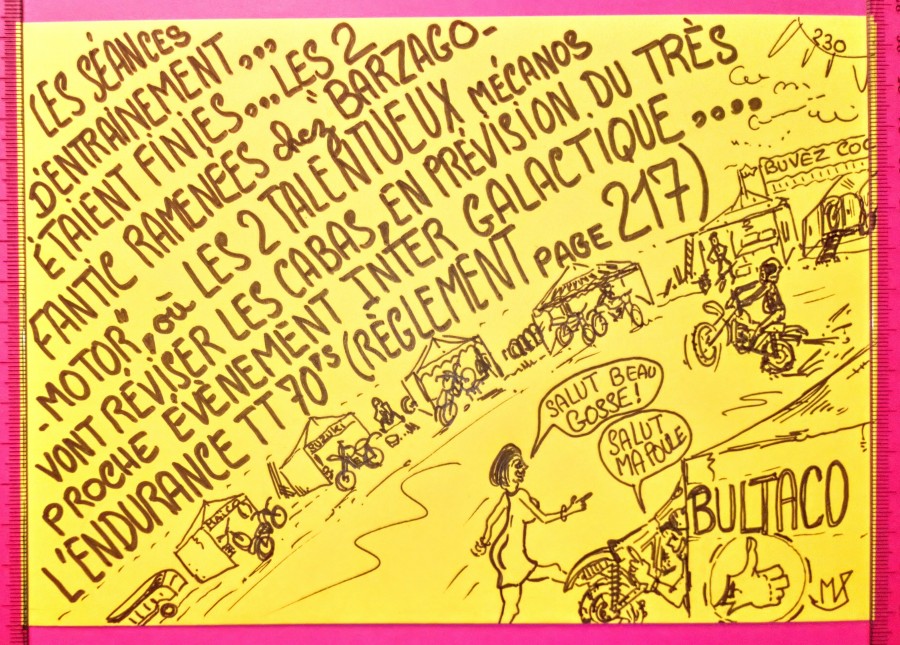 LES SÉANCES
D'ENTRAINEMENT...
ÉTAIENT FINIES... LES 2
FANTIC RAMENÉES chez "BARZAGO-
-MOTOR", où LES 2 TALENTUEUX MÉCANOS
VONT RÉVISER LES CABAS, EN PRÉVISION DU TRÈS
PROCHE ÉVÈNEMENT INTER GALACTIQUE....
L'ENDURANCE TT 70'S (RÈGLEMENT PAGE 217)
230
BUVEZ COC
SUZUKI
MAICO
SALUT BEAU
GOSSE!
SALUT
MA POULE
BULTACO